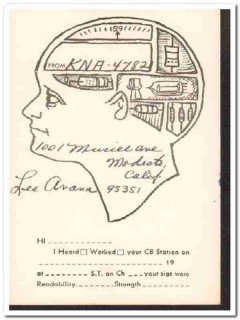 159
FROM KNA-4782
1001 Muriel ave
Modesto,
Calif.
Lee Avana 95351
HI
I Heard □ Worked □ your CB Station on
19
at S.T. on Ch your sigs were
Readability Strength